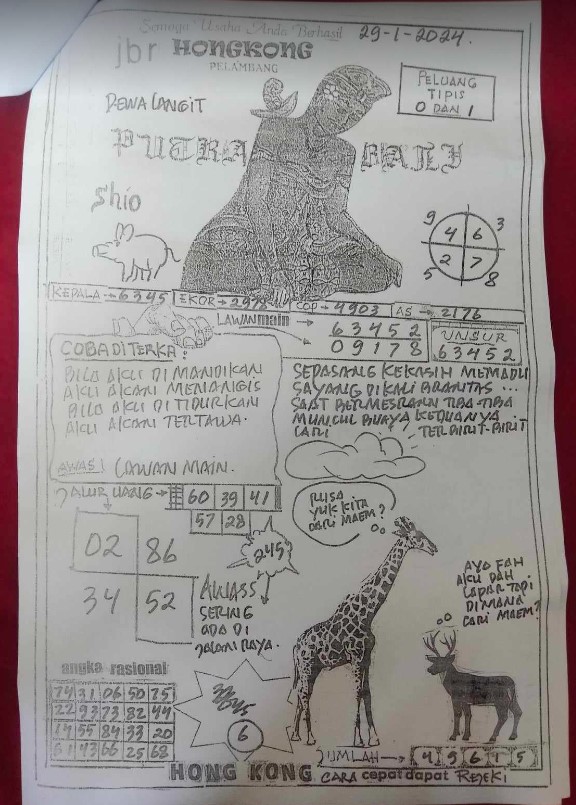 Semoga Usaha Anda Berhasil
29-1-2024.
jbr HONGKONG
PELAMBANG
PELUANG
TIPIS
0 DAN 1
DEWA LANGIT
PUTRA BALI
Shio
9 3
4 6
2 7
5 8
KEPALA → 6345 EKOR → 2978 COP → 4903 AS → 2176
LAWAN main → 63452
→ 09178
UNSUR
63452
COBA DITERKA :
BILA AKU DI MANDIKAN
AKU AKAN MENANGIS
BILA AKU DI TIDURKAN
AKU AKAN TERTAWA.
AWAS! LAWAN MAIN.
SEPASANG KEKASIH MEMADU
SAYANG DI KALI BRANTAS ...
SAAT BERMESRAAN TIBA-TIBA
MUNCUL BUAYA KEDUANYA
LARI TERBIRIT-BIRIT
JALUR UANG → 60 39 41
57 28
02 86
34 52
245
AWASS
SERING
ADA DI
JALAN RAYA.
RUSA
YUK KITA
CARI MAEM?
AYO FAH
AKU DAH
LAPAR TAPI
DIMANA
CARI MAEM?
angka rasional
74 31 06 50 75
22 93 73 82 44
14 55 84 33 20
61 43 66 25 68
6
JUMLAH → 4 9 6 1 5
HONG KONG CARA cepat dapat REJEKI